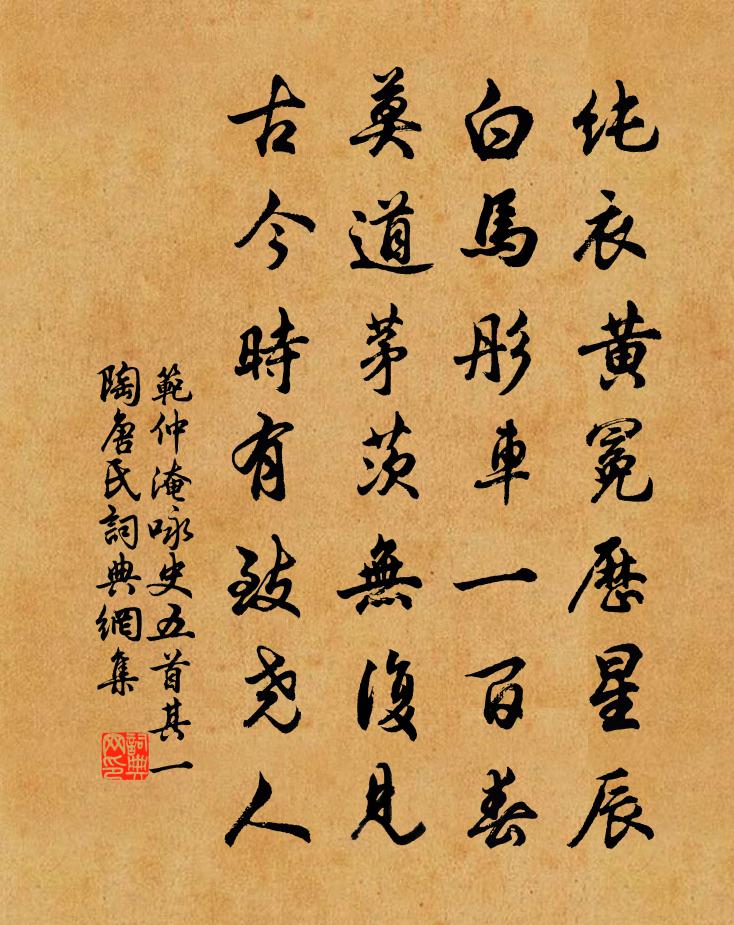 纯衣黄冕历星辰
白馬彤車一百春
莫道茅茨無復見
古今時有致尧人
範仲淹咏史五首其一
陶唐氏詞典網集
詞典網印